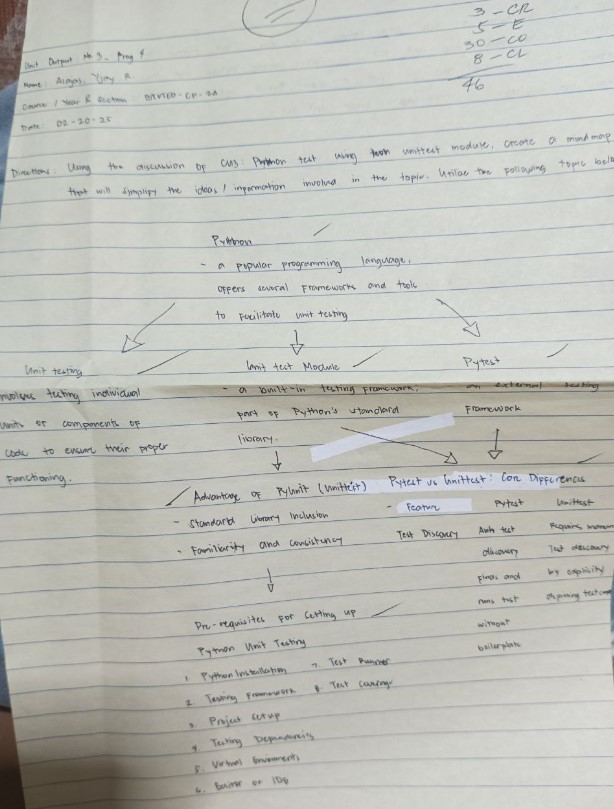 3 - CR
5 - E
30 - CO
8 - CL
46
Unit Output No 3. Prog 4
Name: R.
Course / Year & Section
Date: 02-20-25
Directions: Using the discussion of Python test using unittest module, create a mindmap
that will simplify the ideas / information involved in the topic. Utilize the following topic
Python
- a popular programming language,
offers several frameworks and tools
to facilitate unit testing
Unit testing
involves testing individual
units or components of
code to ensure their proper
functioning.
Unit test Module
- a built-in testing framework,
part of Python's standard
library.
Pytest
- an external testing
Framework
Advantage of PyUnit (Unittest)
- Standard Library Inclusion
- Familiarity and consistency
Pytest vs Unittest: Core Differences
- Feature Pytest Unittest
Test Discovery Auto test Requires
discovery Test discovery
finds and by explicitly
runs test defining
without
boilerplate
Pre-requisites for Setting up
Python Unit Testing
1. Python Installation
2. Testing Framework
3. Project setup
4. Testing Dependencies
5. Virtual Enviroments
6. Editor or IDE
7. Test Runner
8. Test Coverage